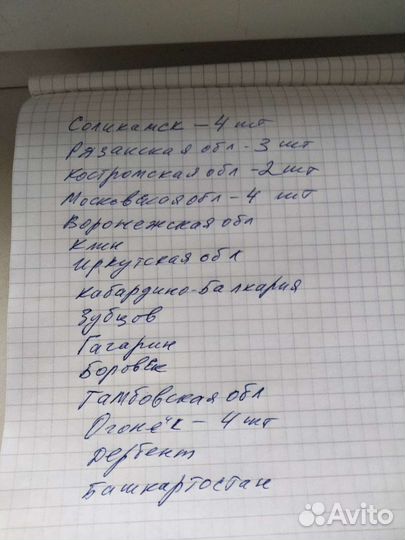 Соликамск – 4 шт
Рязанская обл - 3 шт
Костромская обл - 2 шт
Московская обл - 4 шт
Воронежская обл
Клин
Иркутская обл
Кабардино-Балкария
Зубцов
Гагарин
Боровск
Тамбовская обл
Огонёк – 4 шт
Дербент
Башкартостан
Avito